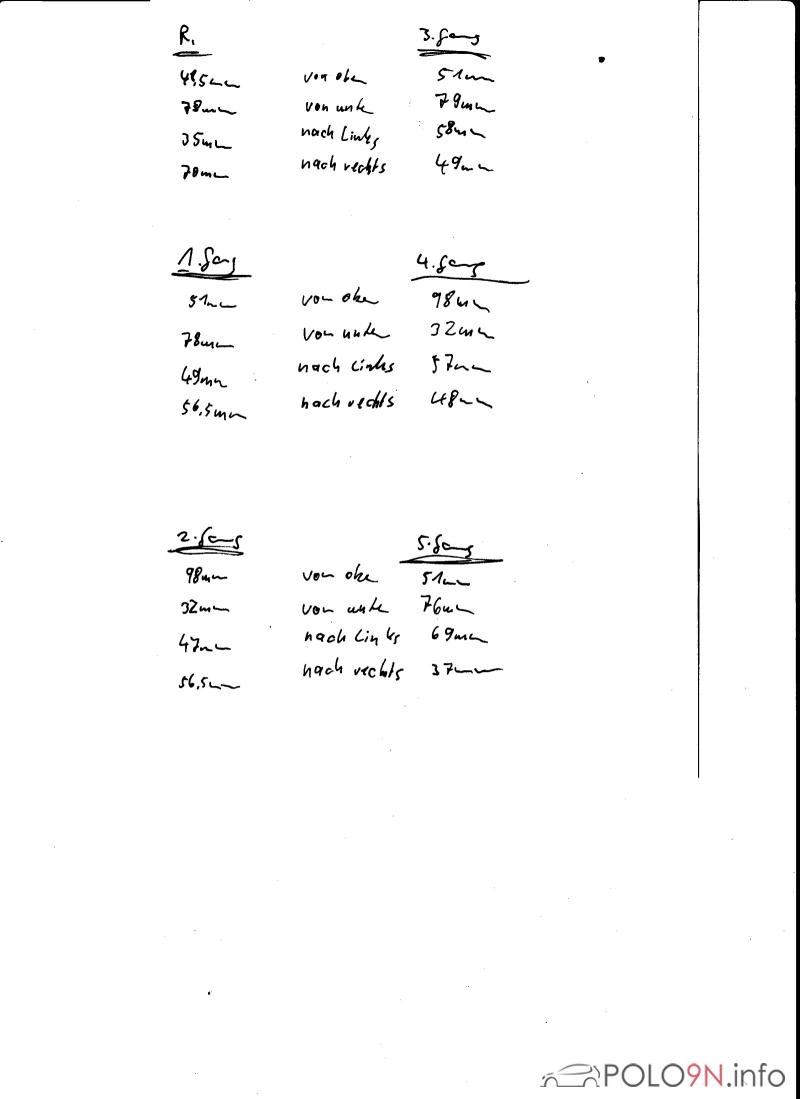 R. 3. Gang
49,5mm von oben 51mm
78mm von unten 79mm
35mm nach Links 58mm
70mm nach rechts 49mm
1. Gang 4. Gang
51mm von oben 98mm
78mm von unten 32mm
49mm nach Links 57mm
56,5mm nach rechts 48mm
2. Gang 5. Gang
98mm von oben 51mm
32mm von unten 76mm
47mm nach Links 69mm
56,5mm nach rechts 37mm
POLO9N.info